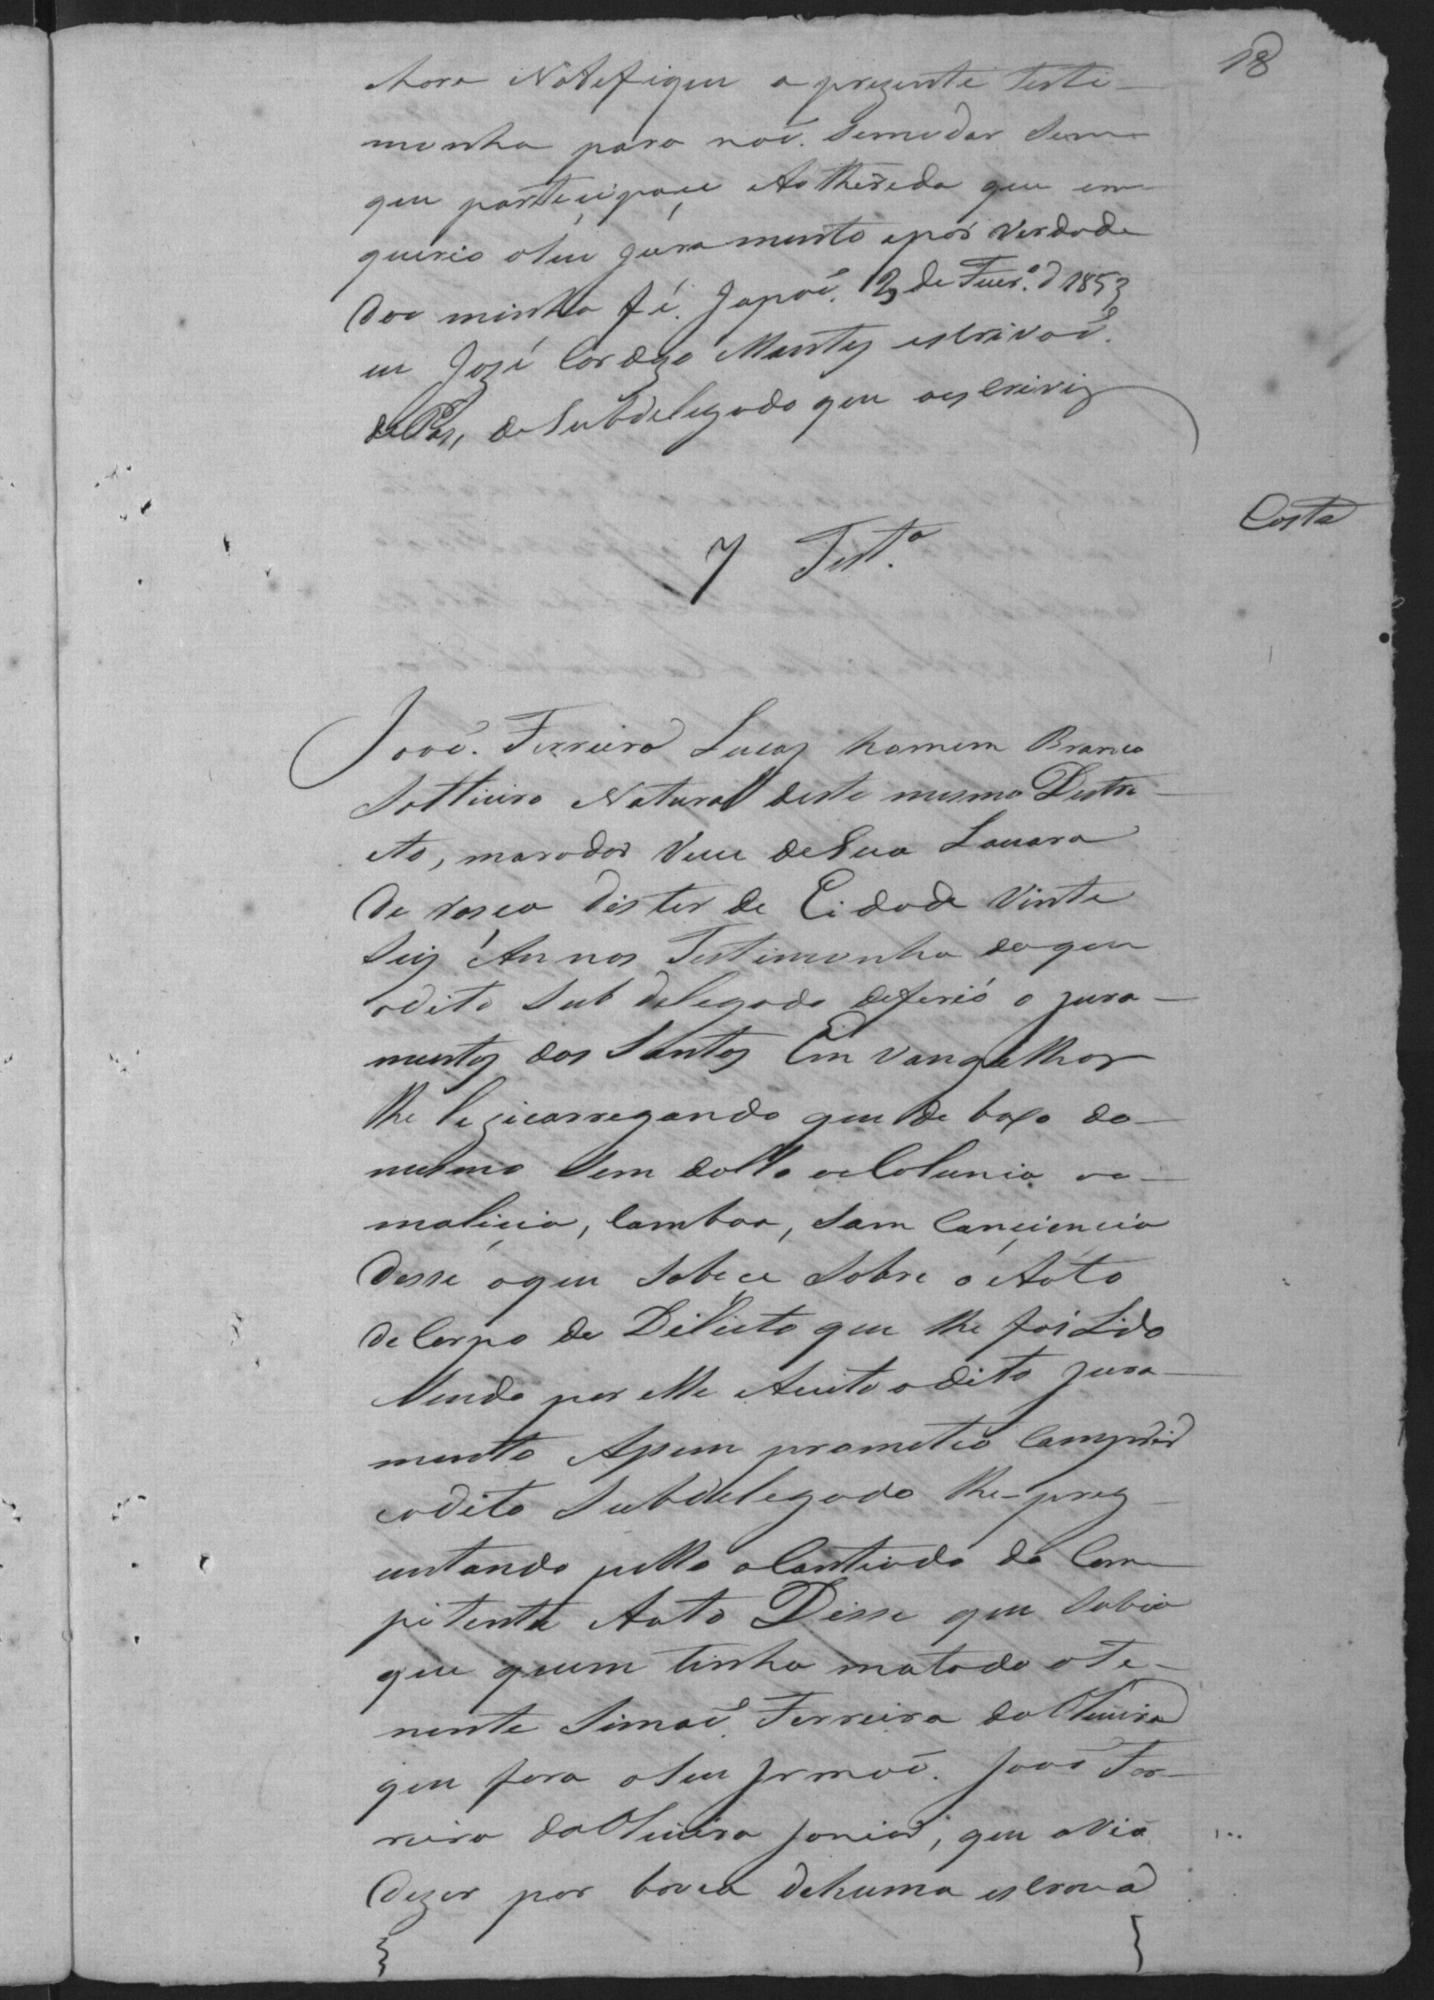 18
hora Notefiquei a prezente teste-
munha para naõ. semudar sem
que partecipace
querio oseu juramento epor Verdade
Dou minha fé. Japaõ. 2 de Fuer.º d 1853
eu Jozé Cordzo Montes escrivaõ.
de Pas, de Subdelegado que oescriviz
Costa
7 Test.ª
Joaõ. Ferreira Lucas homem Branco
Soltteiro Natural deste mesmo Destre-
eto, morador Veve de Sua Lavora
de rosca dis ter de Eidade Vinte
seis Annos Testimunha daquu
odito Subdelegado deferió o jura-
mentos dos Santos Ein vangelhos
lhe que de baxo do
mesmo sem dollo
malicia, com boa, sam Conciencia
Desse oque Sobece Sobre o Aoto
de Corpo de Dilicto que lhe foi Lido
Sendo por elle Aceito odito jura-
mento Aseim prometeo Comprir
eodito Subdelegado lhe-preg
untando pello oContiudo do Com
pitente Aoto Disse que Sabia
que quem tinha matado oTe-
nente Simaõ Ferreira do Oliveira
que fora oseu Jrmaõ. Joaõ Fer-
reira do Oliveira Junior, que oVio
Dezer por bocca dehuma escrava